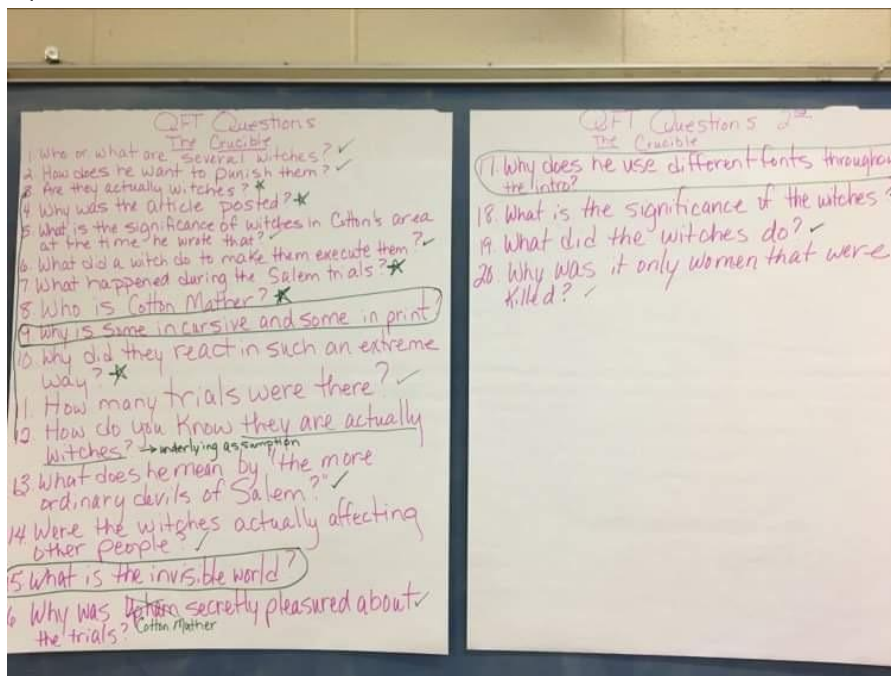 QFT Questions
The Crucible
1. Who or what are several witches? ✓
2. How does he want to punish them? ✓
3. Are they actually witches? ★
4. Why was the article posted? ★
5. What is the significance of witches in Cotton's area
at the time he wrote that? ✓
6. What did a witch do to make them execute them? ✓
7. What happened during the Salem trials? ★
8. Who is Cotton Mather? ★
9. Why is some in cursive and some in print?
10. Why did they react in such an extreme
way? ★
11. How many trials were there? ✓
12. How do you know they are actually
witches? → underlying assumption
13. What does he mean by "the more
ordinary devils of Salem?" ✓
14. Were the witches actually affecting
other people? ✓
15 What is the invisible world?
Why was secretly pleasured about ✓
the trials? Cotton Mather
QFT Questions 2
The Crucible
17. Why does he use different fonts throughou
the intro?
18. What is the significance of the witches
19. What did the witches do? ✓
20. Why was it only women that were
killed? ✓